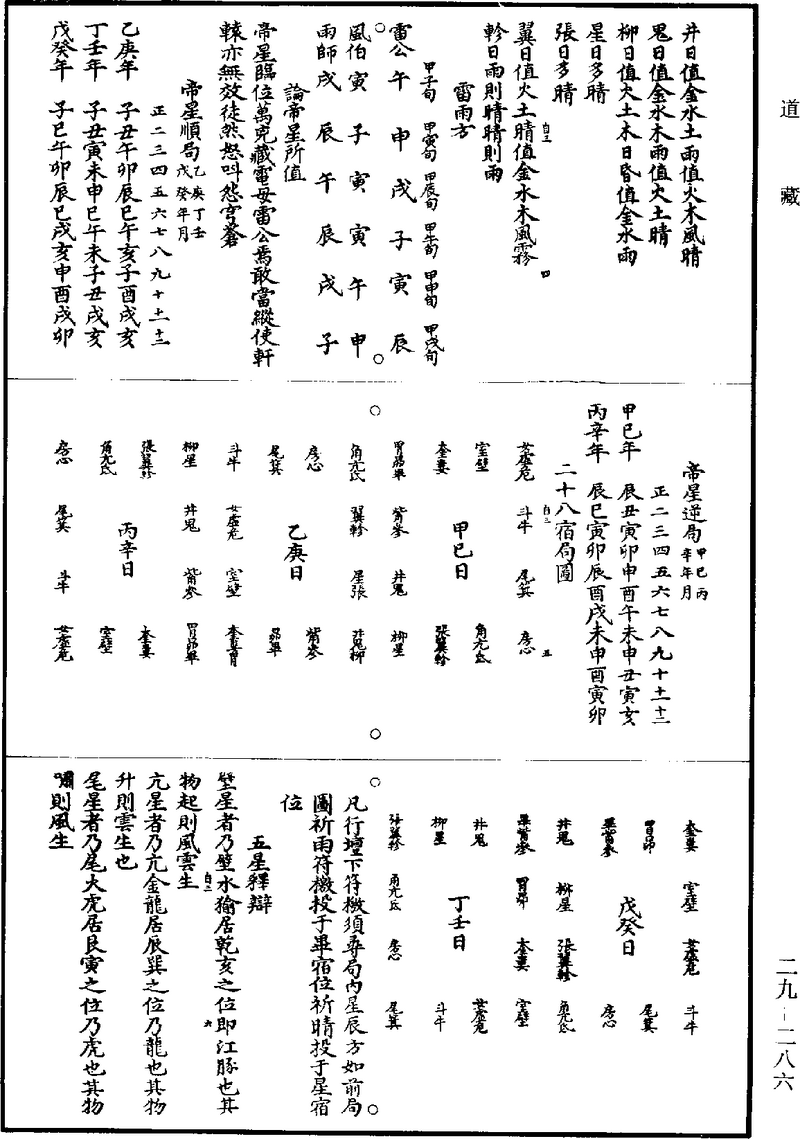 道藏
井日值金水土雨值火木風晴
鬼日值金水木雨值火土晴
柳日值火土木日昏值金水雨
星日多晴
張日多晴
翼日值火土晴值金水木風霧
軫日雨則晴晴則雨
雷雨方
甲子旬 甲寅旬 甲辰旬 甲午旬 甲申旬 甲戌旬
雷公 午 申 戌 子 寅 辰
風伯 寅 子 寅 寅 午 申
雨師 戌 辰 午 辰 戌 子
論帝星所值
帝星臨位萬鬼藏電母雷公焉敢當縱使軒
轅亦無效徒然怒叫怨穹蒼
帝星順局 乙庚丁壬戊癸年月
正二三四五六七八九十十一十二
乙庚年 子丑午卯辰巳午亥子酉戌亥
丁壬年 子丑寅未申巳午未子丑戌亥
戊癸年 子巳午卯辰巳戌亥申酉戌卯
帝星逆局 甲己丙辛年月
正二三四五六七八九十十一十二
甲巳年 辰丑寅卯申酉午未申丑寅亥
丙辛年 辰巳寅卯辰酉戌未申酉寅卯
二十八宿局圖
女虛危 斗牛 尾箕 房心
室壁 角亢氐
奎婁 甲巳日 張翼軫
胃昴畢 觜參 井鬼 柳星
角亢氐 翼軫 星張 井鬼柳
房心 觜參
尾箕 乙庚日 昴畢
斗牛 女虛危 室壁 奎婁胃
柳星 井鬼 觜參 胃昴畢
張翼軫 奎婁
角亢氐 丙辛日 室壁
房心 尾箕 斗牛 女虛危
奎婁 室壁 女虛危 斗牛
胃昴 尾箕
畢觜參 戊癸日 房心
井鬼 柳星 張翼軫 角亢氐
畢觜參 胃昴 奎婁 室壁
井鬼 女虛危
柳星 丁壬日 斗牛
張翼軫 角亢氐 房心 尾箕
凡行壇下符檄須尋局內星辰方如前局
圖祈雨符檄投于畢宿位祈晴投于星宿
位
五星釋辯
壁星者乃壁水㺄居乾亥之位即江豚也其
物起則風雲生
亢星者乃亢金龍居辰巽之位乃龍也其物
升則雲生也
尾星者乃尾火虎居艮寅之位乃虎也其物
嘯則風生
二九－二八六